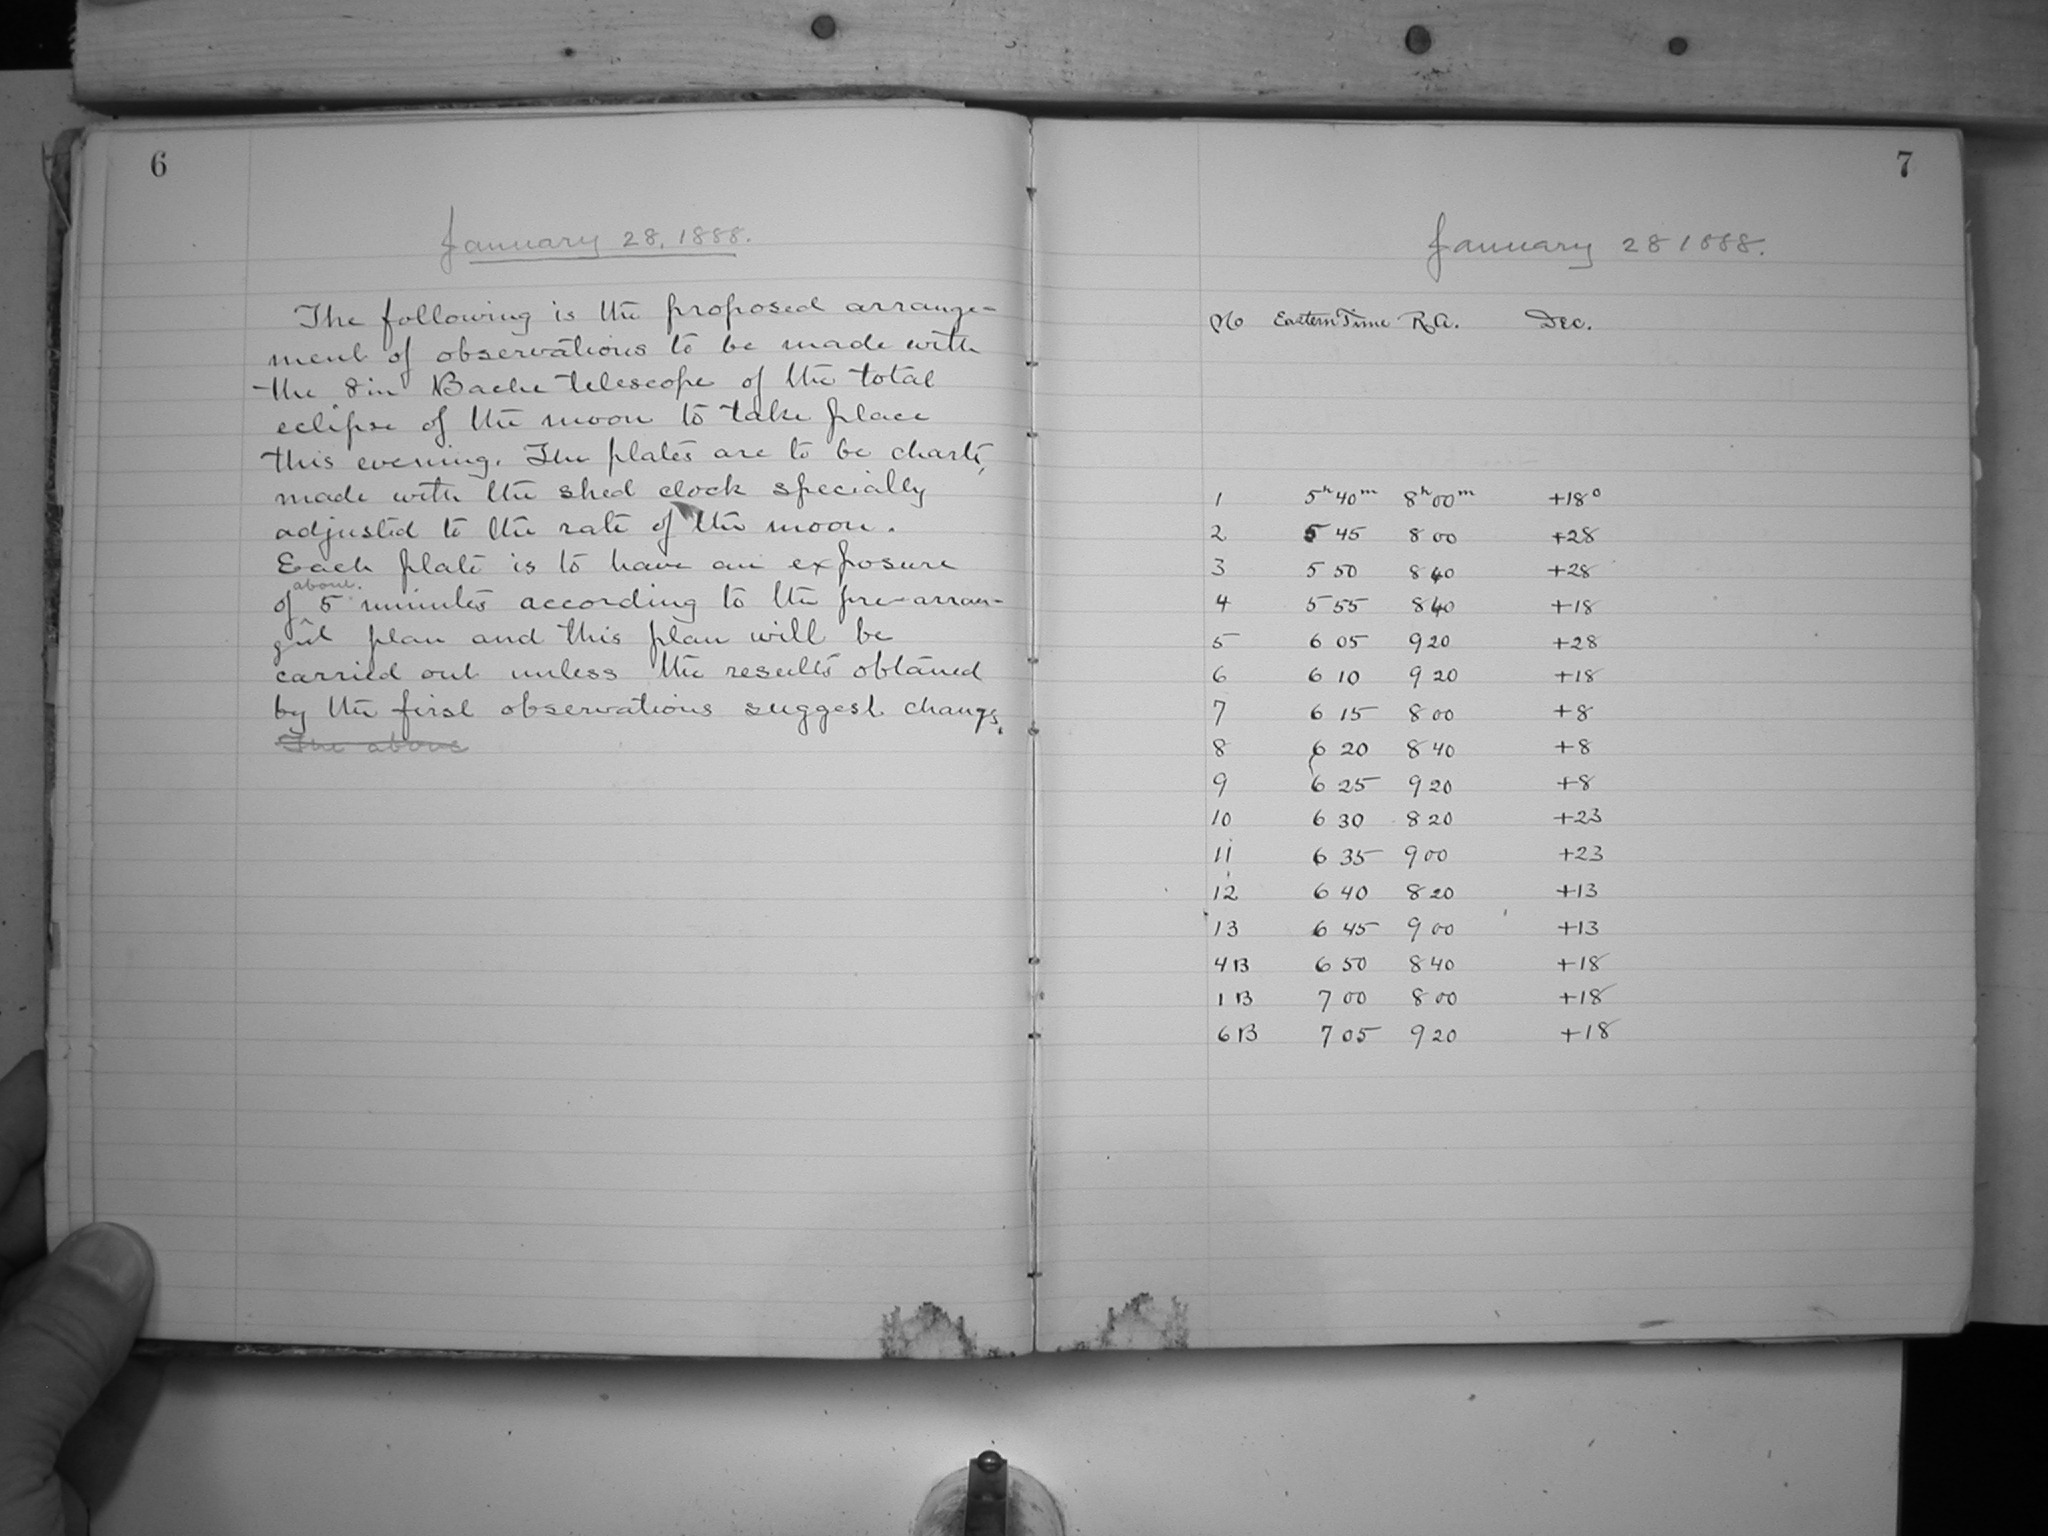 6
January 28, 1888.
The following is the proposed arrange-
ment of observations to be made with
the 8 in Bache telescope of the total
eclipse of the moon to take place
this evening. The plates are to be charts,
made with the shed clock specially
adjusted to the rate of the moon.
Each plate is to have an exposure
about
of 5 minutes according to the pre-arran-
ged plan and this plan will be
carried out unless the results obtained
by the first observations suggest change.
The above
7
January 28 1888.
No Eastern Time R.A. Dec.
1 5h 40m 8h 00m +18°
2 5 45 8 00 +28
3 5 50 8 40 +28
4 5 55 8 40 +18
5 6 05 9 20 +28
6 6 10 9 20 +18
7 6 15 8 00 +8
8 6 20 8 40 +8
9 6 25 9 20 +8
10 6 30 8 20 +23
11 6 35 9 00 +23
12 6 40 8 20 +13
13 6 45 9 00 +13
4B 6 50 8 40 +18
1B 7 00 8 00 +18
6B 7 05 9 20 +18